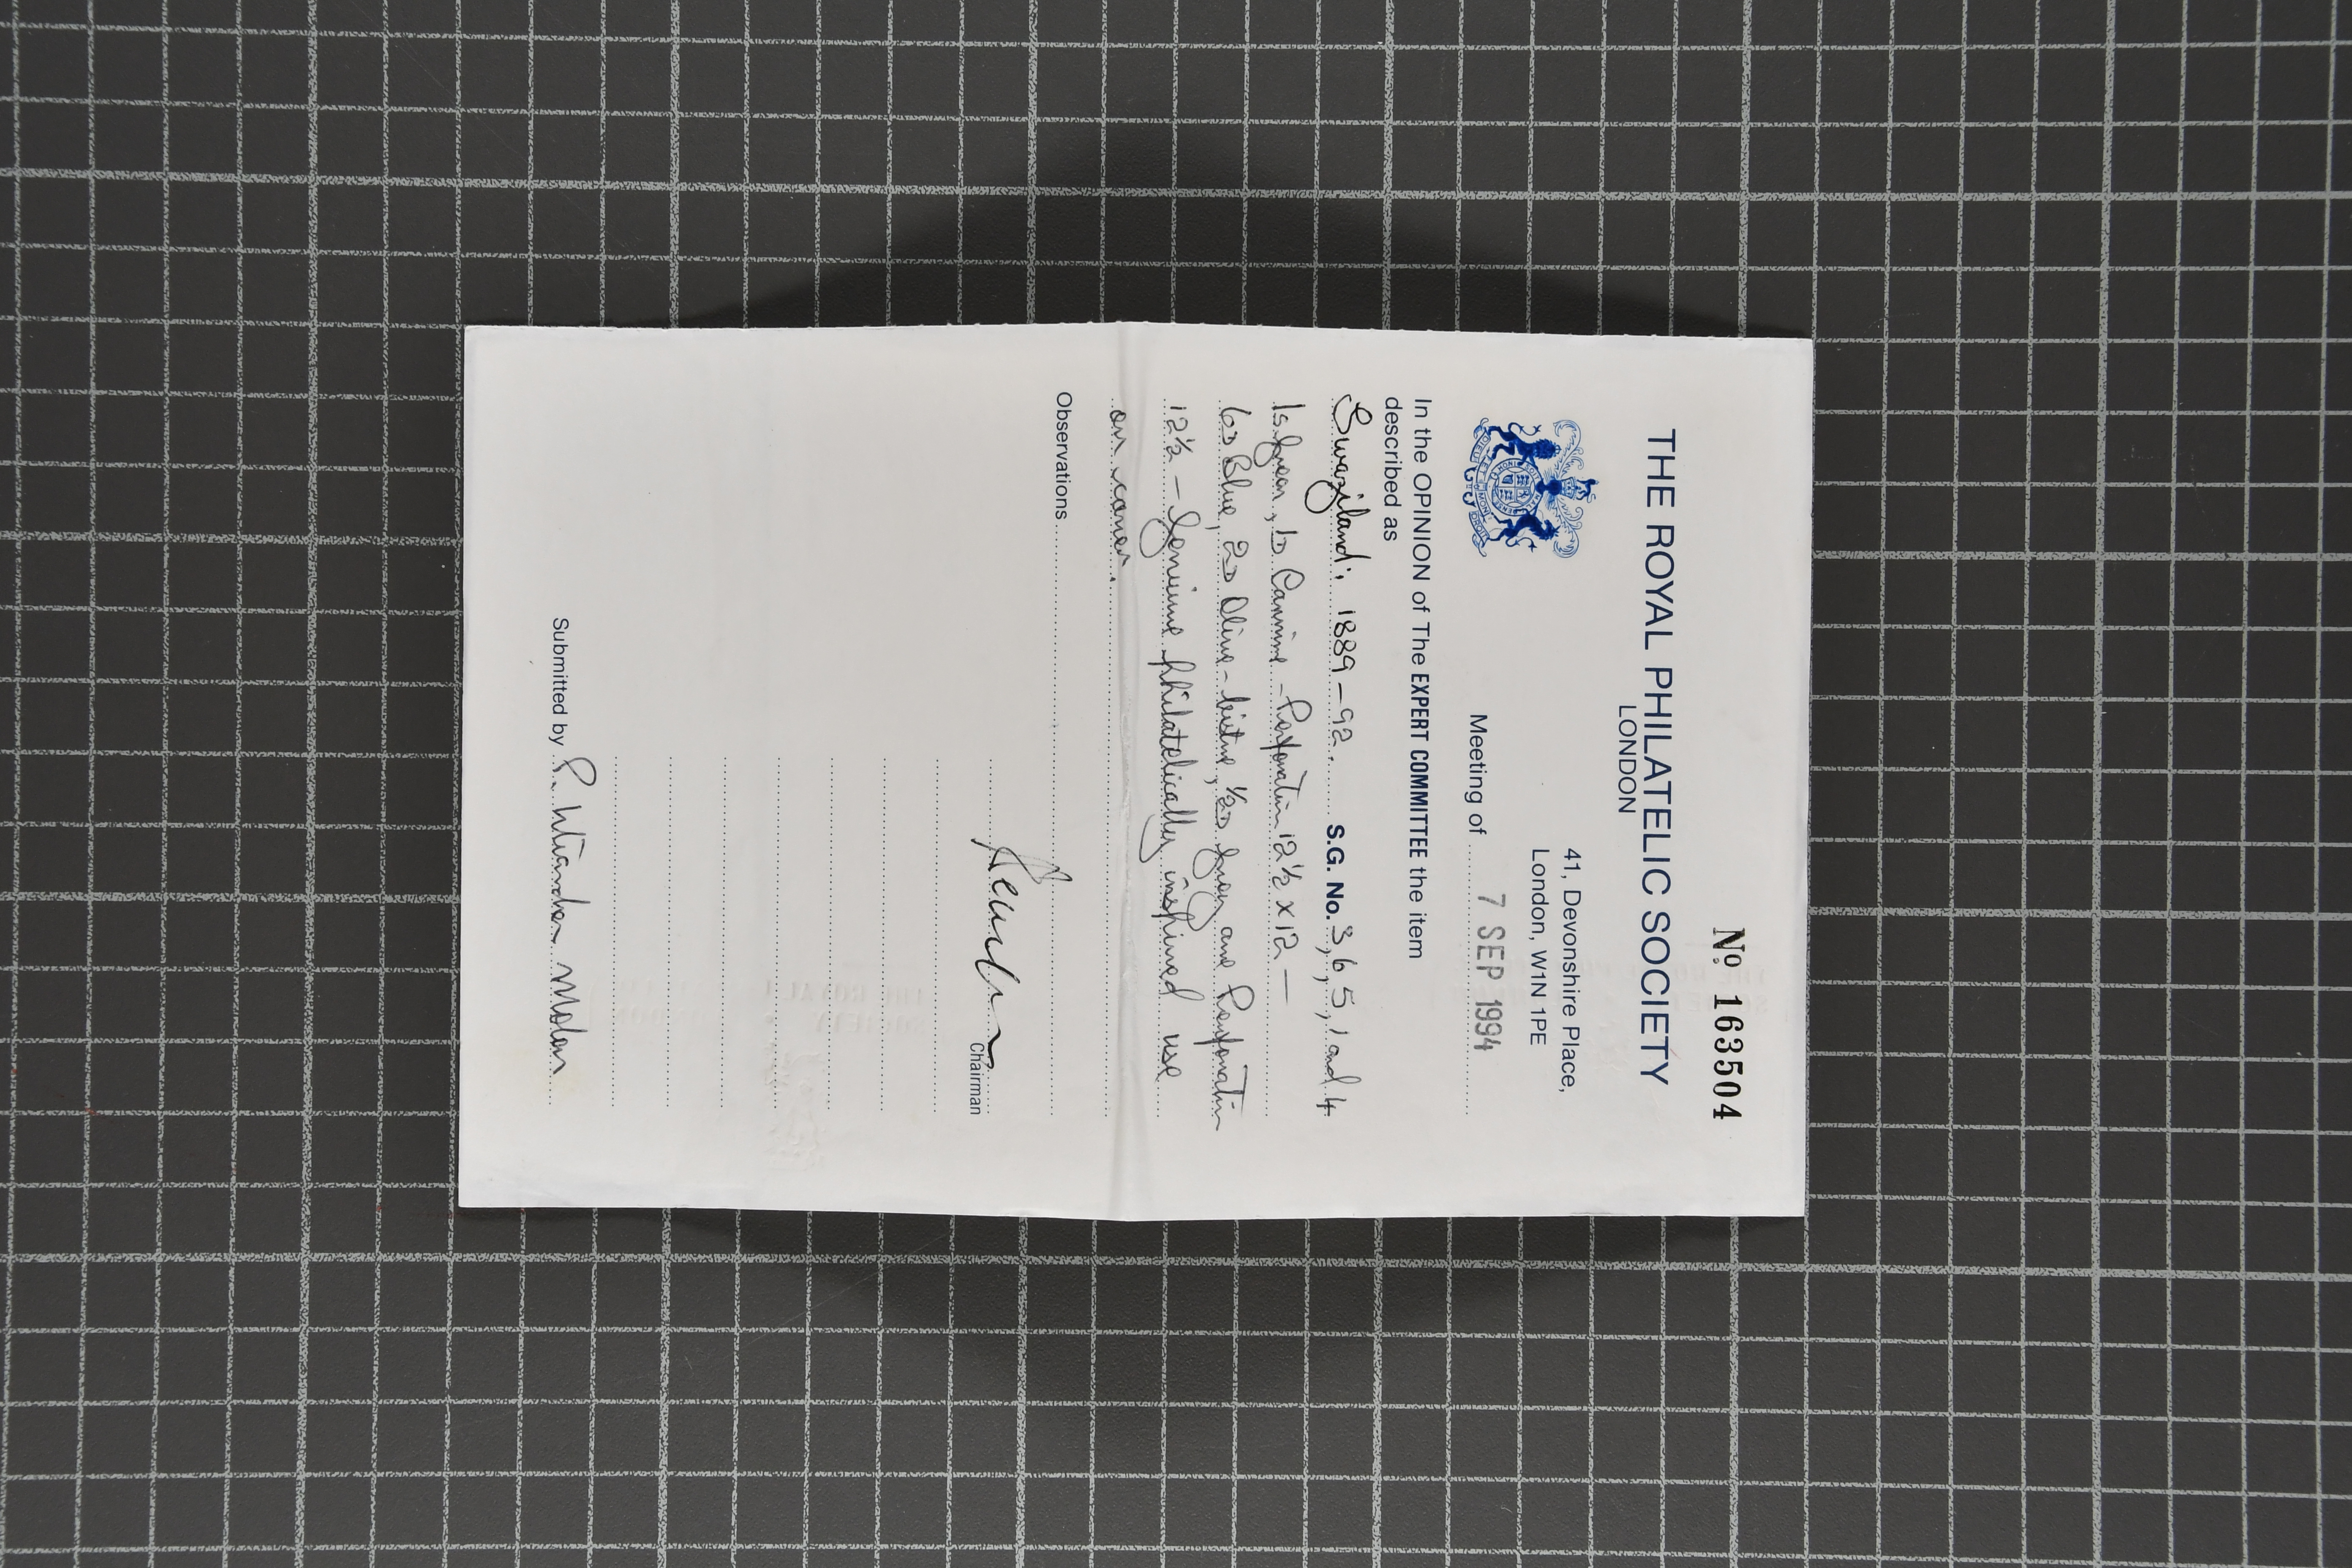 No. 163504
THE ROYAL PHILATELIC SOCIETY
LONDON
41, Devonshire Place,
London, W1N 1PE
Meeting of 7 SEP 1994
In the OPINION of The EXPERT COMMITTEE the item
described as
Swaziland: 1889-92. S.G. No. 3, 6, 5, 1 and 4
1s Green, 1D Carmine - Perforation 12½ x 12 -
6D Blue, 2D Olive-bistre, ½D Grey and Perforation
12½ - Genuine philatelically inspired use
on cover.
Observations
Chairman
Submitted by P.